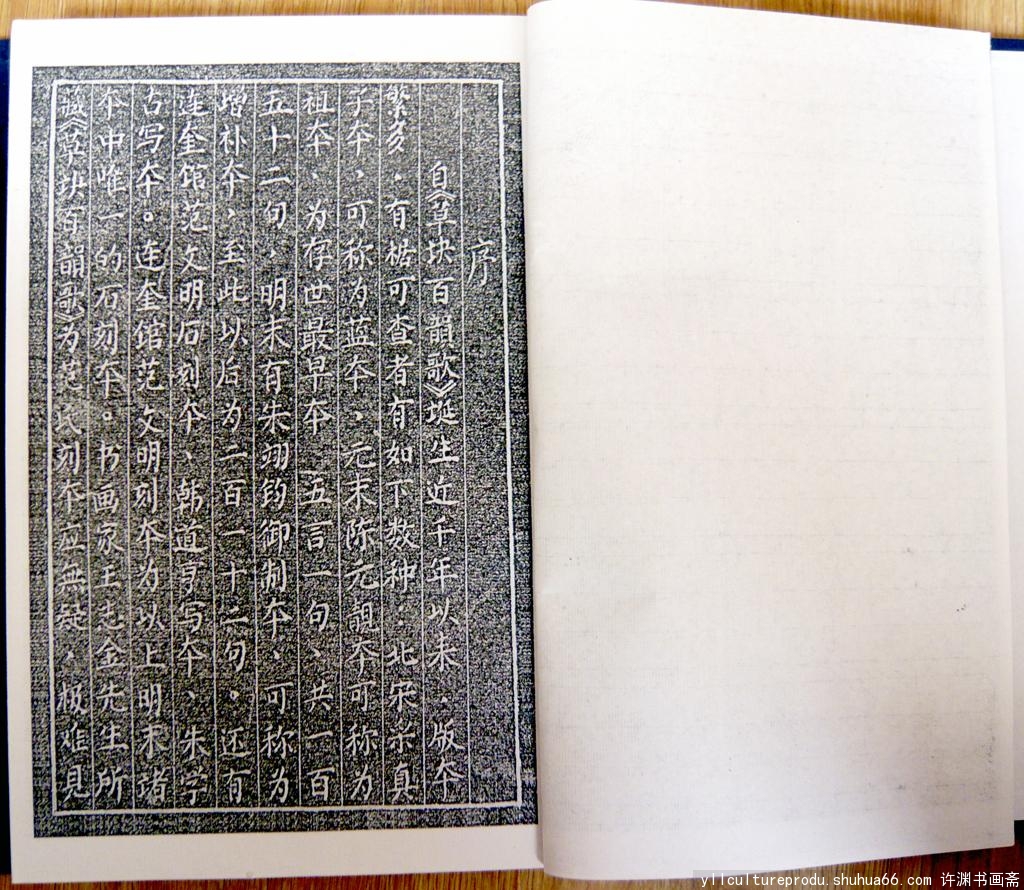 序
自《草块百韻歌》埏生近千年以来．版夲
繁多．有楛可查者有如下数种：北宋尒真
子夲，可称为蓝夲，元末陈元靚夲可称为
祖夲、为存世最早夲 五言一句、共一百
五十二句，明末有朱翊钧御制夲、可称为
增补夲、至此以后为二百一十二句。还有
连奎馆范文明石刻夲、韩道亨写夲、朱学
古写夲。连奎馆范文明刻夲为以上明末诸
夲中唯一的石刻夲。书画家王志金先生所
藏《草块百韻歌》为范氏刻夲应無疑，极难見
yllcultureprodu.shuhua66.com 许渊书画斋